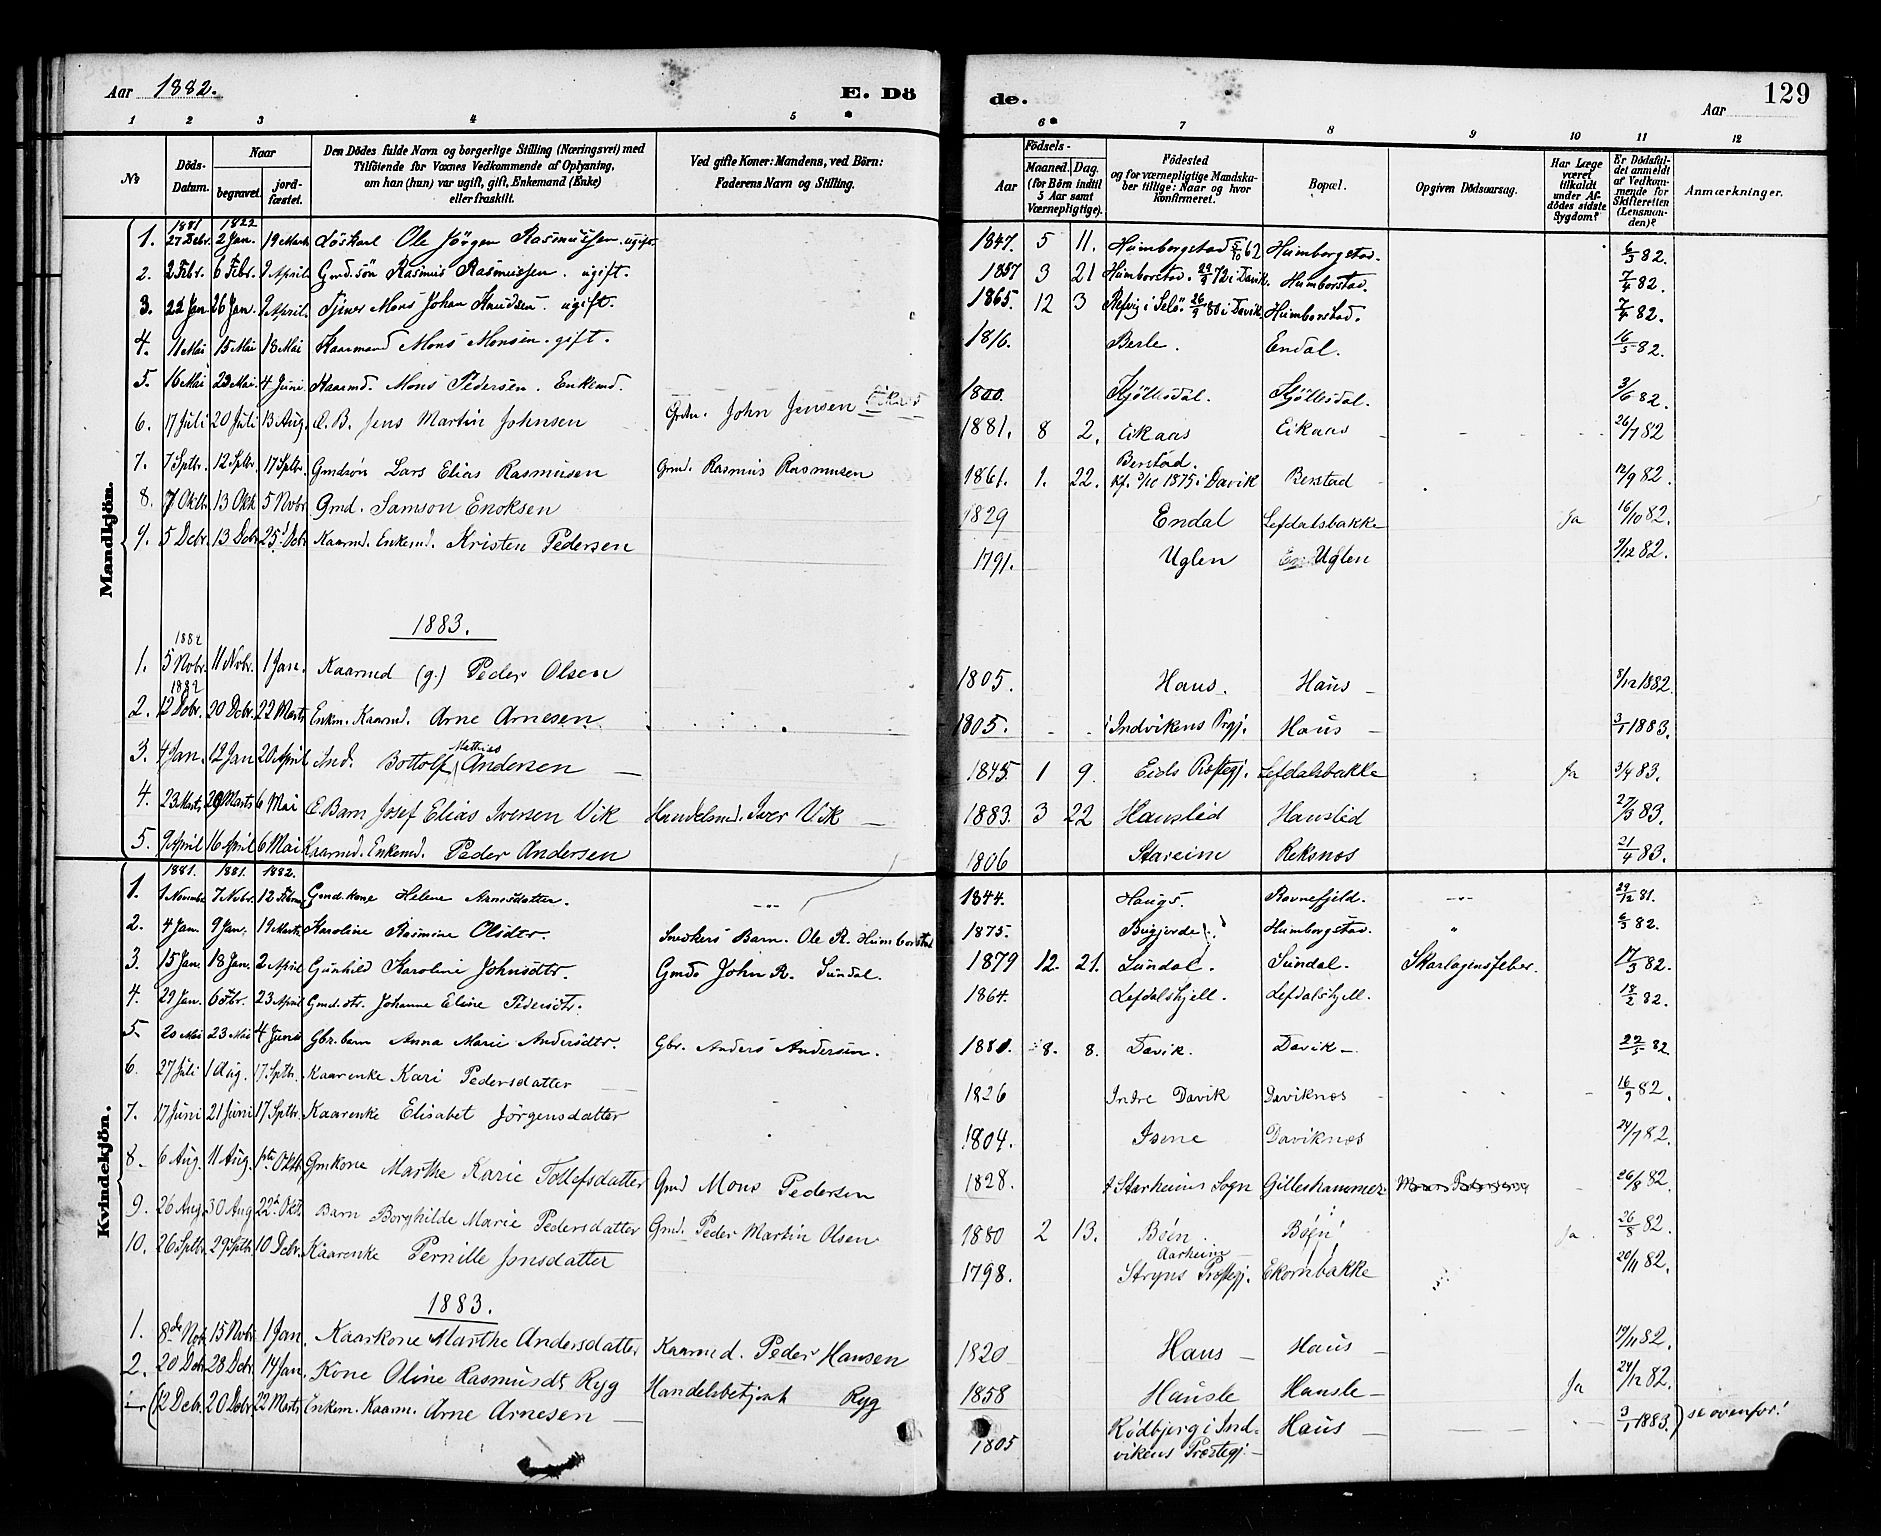 Aar 1882. E. Dö de. Aar 129
1 2 3 4 5 6 7 8 9 10 11 12
№ Döds-Datum. Naar begravet. jordfæstet. Den Dödes fulde Navn og borgerlige Stilling (Næringsvei) med Tilföiende for Voxnes Vedkommende af Oplysning, om han (hun) var ugift, gift, Enkemand (Enke) eller fraskilt. Ved gifte Koner: Mandens, ved Börn: Faderens Navn og Stilling. Födsels- Aar Maaned. Dag. (for Börn indtil 5 Aar samt Værnepligtige). Födested og for værnepligtige Mandskaber tillige: Naar og hvor konfirmeret. Bopæl. Opgiven Dödsaarsag. Har Læge været tilkaldt under Afdödes sidste Sygdom? Er Dödsfaldet anmeldt af Vedkommende for Skifteretten (Lensmanden)? Anmærkninger.
Mandkjön.
1881 1822
1. 27 Debr. 2 Jan. 19 Marts Löskarl Ole Jörgen Rasmussen. ugift. 1847. 5 11. Humborgstad 5/10 62 Humborgstad. 6/3 82.
2. 2 Febr. 6 Febr. 9 April. Gmd. sön Rasmus Rasmussen. ugift. 1857 3 21 Humborstad. 29/9 72 i Davik. Humborstad. 7/4 82.
3. 22 Jan. 26 Jan. 9 April. Tjener Mons Johan Knudsen. ugift. 1865. 12 3 Refvig i Selö. 26/9 80 i Davik Humborstad. 7/4 82.
4. 11 Mai 15 Mai 18 Mai Kaarmand Mons Monsen. gift. 1816. Berle. Endal. 16/5 82.
5. 16 Mai 23 Mai. 4 Juni Kaarmd. Mons Pedersen. Enkemd. 1800. Hjöllsdal. Hjöllsdal. 3/6 82.
6. 17 Juli 20 Juli 13 Aug. E. B. Jens Martin Johnsen Grdm. John Jensen Eikaas 1881. 8 2. Eikaas Eikaas 26/7 82
7. 7 Sptbr. 12 Sptbr. 17 Sptbr. Gmdsön Lars Elias Rasmusen Gmd. Rasmus Rasmusen 1861. 1. 22. Berstad. Kf. 3/10 1875 i Davik Berstad 12/9 82.
8. 7 Oktb. 13 Okt. 5 Novbr. Gmd. Samson Enoksen 1829 Endal Lefdalsbakke Ja 16/10 82.
9. 5 Debr. 13 Debr. 25 Debr. Kaarmd. Enkemd. Kristen Pedersen 1791. Uglen Uglen 9/12 82.
1883.
1882
1. 5 Nobr. 11 Novbr. 1 Jan. Kaarmd (g.) Peder Olsen 1805. Haus. Haus 8/12 1882.
1882
2. 12 Debr. 20 Debr. 22 Marts. Enkm. Kaarmd. Arne Arnesen. 1805. i Indvikens Prgj. Haus 3/1 1883.
3. 4 Jan. 12 Jan 20 April Ind. Bottolf Mathias Andersen 1845 1 9. Eids Præstegj. Lefdalsbakke Ja 3/4 83.
4. 23 Marts 29 Marts 6 Mai E. Barn Josef Elias Iversen Vik Handelsmd. Iver Vik 1883. 3 22 Hansled Hansled 27/3 83.
5. 9 April 16 April 6 Mai Kaarmd. Enkemd. Peder Andersen 1806 Stareim Reksnes 21/4 83.
Kvindekjön.
1881. 1881. 1882.
1. 1 Novembr 7 Novbr. 12 Februar Gmd. kone Helene Arnesdatter. 1844. Haugs. Ravnefjeld. 29/12 81.
2. 4 Jan. 9 Jan. 19 Marts. Karoline Rasmine Olsdtr. Snedkers Barn. Ole R. Humborstad 1875. Bugjerde Humborgstad. 6/3 82.
3. 15 Jan. 18 Jan. 2 April Gunhild Karoline Johnsdtr. Gmds John R. Sundal. 1879 12. 21. Sundal. Sundal. Skarlagensfeber. 17/3 82.
4. 29 Jan. 6 Fbr. 23 April Gmd. dtr. Johanne Eline Pedersdtr. 1864. Lefdalshjell. Lefdalshjell. 18/2 82.
5. 20 Mai 23 Mai 4 Juni Gbr. barn Anna Marie Andersdtr. Gbr. Anders Andersen. 1881. 8. 8. Davik. Davik. 22/5 82
6. 27 Juli 1 Aug. 17 Sptbr. Kaarenke Kari Pedersdatter 1826 Indre Davik Daviknes 16/9 82.
7. 17 Juni 21 Juni 17 Sptbr. Kaarenke Elisabet Jörgensdatter 1804. Isene Daviknes 24/7 82.
8. 6 Aug. 11 Aug. 1ste Oktb. Gmkone Marthe Karie Tollefsdatter Gmd Mons Pedersen 1828. Starheims Sogn Gilleshammer Mons Pedersen 26/8 82.
9. 26 Aug. 30 Aug 22 Okt. Barn Borghilde Marie Pedersdatter Gmd. Peder Martin Olsen 1880 2 13. Böen Böen Ja 26/8 82.
10. 26 Sptbr. 29 Sptb. 10 Debr. Kaarenke Pernille Jonsdatter 1798. Aarheim Stryns Præstegj. Ekornbakke 20/11 82.
1883.
1. 8de Nobr. 15 Nobr. 1 Jan. Kaarkone Marthe Andersdatter Kaarmd. Peder Hansen 1820 Haus Haus 19/11 82.
2. 20 Debr. 28 Debr. 14 Jan. Kone Oline Rasmusdt Ryg Handelsbetjent Ryg 1858 Hausle Hausle Ja 24/12 82.
(12 Debr. 20 Debr. 22 Marts. Enkem. Kaarm. Arne Arnesen 1805 Rödbjerg i Indvikens Præstegj. Haus 3/1 1883.) se ovenfor!